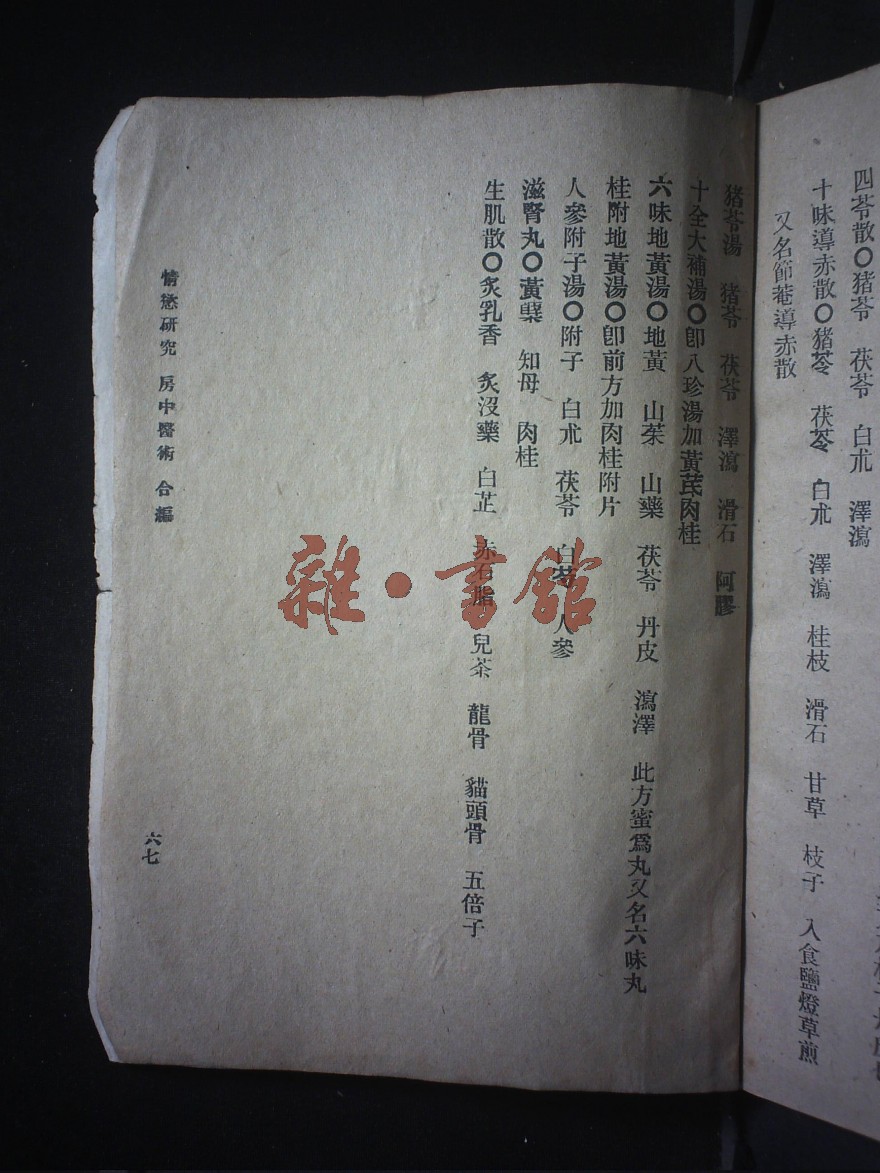 四苓散〇猪苓　茯苓　白朮　澤瀉
十味導赤散〇猪苓　茯苓　白朮　澤瀉　桂枝　滑石　甘草　枝子　入食鹽燈草煎
又名節菴導赤散
猪苓湯　猪苓　茯苓　澤瀉　滑石　阿膠
十全大補湯〇卽八珍湯加黃芪肉桂
六味地黃湯〇地黃　山茱　山藥　茯苓　丹皮　瀉澤　此方蜜爲丸又名六味丸
桂附地黃湯〇卽前方加肉桂附片
人參附子湯〇附子　白朮　茯苓　白芍　人參
滋腎丸〇黃櫱　知母　肉桂
生肌散〇炙乳香　炙沒藥　白芷　赤石脂　兒茶　龍骨　貓頭骨　五倍子
情慾研究　房中醫術　合編
六七
雜·書館